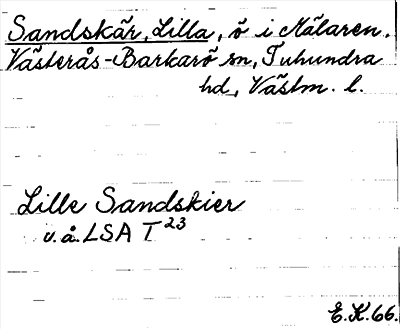 Sandskär, Lilla, ö i Mälaren.
Västerås-Barkarö sn, Tuhundra
hd, Västm. l.
Lille Sandskier
u.å. LSA T 23
E.K. 66.